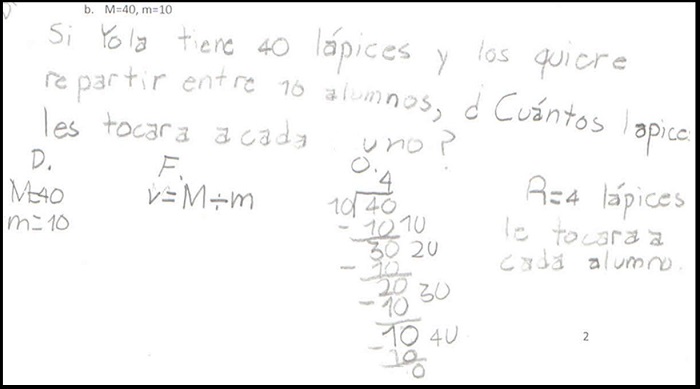 b. M=40, m=10
Si Yola tiene 40 lápices y los quiere
repartir entre 10 alumnos, ¿Cuántos lapice
les tocara a cada uno?
D. F. O.
M=40 v=M÷m 4
m=10 10 40
- 10 1U
30 2U
- 10
20 3U
- 10
10 4U
- 10
0
R=4 lápices
le tocara a
cada alumno.
2